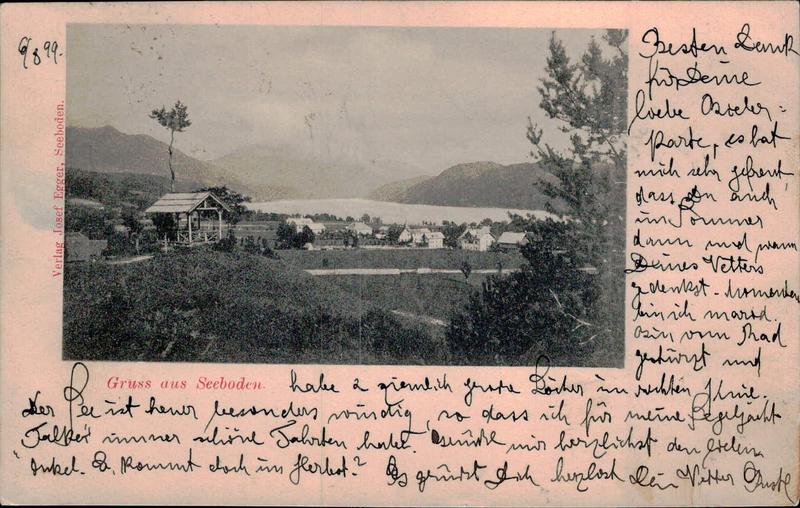 6/8 99.
Besten Dank
für Deine
liebe
Karte, es hat
mich sehr gefreut,
dass Du auch
im Sommer
dann und wann
Deines Vetters
gedenkst. Momentan
bin ich marod.
Bin vom Rad
gestürzt und
habe 2 ziemlich große Löcher im rechten Knie.
Der See ist heuer besonders windig, so dass ich für meine Segelyacht
"Falke" immer schöne Fahrten habe. mir herzlichst den lieben
Onkel. Er kommt doch im Herbst? Es grüßt Dich herzlichst Dein Vetter Gustl
Verlag Josef Egger, Seeboden.
Gruss aus Seeboden.